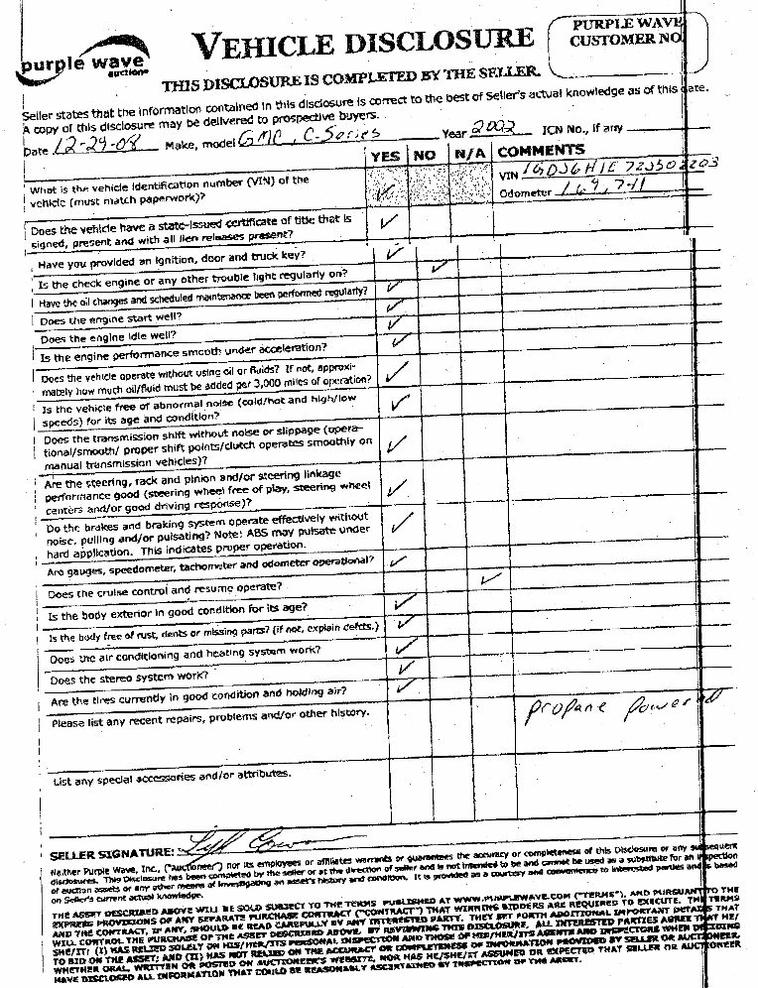 purple wave
auction
VEHICLE DISCLOSURE
PURPLE WAVE
CUSTOMER NO.
THIS DISCLOSURE IS COMPLETED BY THE SELLER.
Seller states that the information contained in this disclosure is correct to the best of Seller's actual knowledge as of this date.
A copy of this disclosure may be delivered to prospective buyers.
Date 12-29-08 Make, model GMC, C-Series Year 2002 ICN No., if any
YES NO N/A COMMENTS
What is the vehicle identification number (VIN) of the
vehicle (must match paperwork)?
VIN 1GDJ6H1E72J502203
Odometer 169,741
Does the vehicle have a state-issued certificate of title that is
signed, present and with all lien releases present?
Have you provided an ignition, door and truck key?
Is the check engine or any other trouble light regularly on?
Have the oil changes and scheduled maintenance been performed regularly?
Does the engine start well?
Does the engine idle well?
Is the engine performance smooth under acceleration?
Does the vehicle operate without using oil or fluids? If not, approxi-
mately how much oil/fluid must be added per 3,000 miles of operation?
Is the vehicle free of abnormal noise (cold/hot and high/low
speeds) for its age and condition?
Does the transmission shift without noise or slippage (opera-
tional/smooth/ proper shift points/clutch operates smoothly on
manual transmission vehicles)?
Are the steering, rack and pinion and/or steering linkage
performance good (steering wheel free of play, steering wheel
centers and/or good driving response)?
Do the brakes and braking system operate effectively without
noise, pulling and/or pulsating? Note: ABS may pulsate under
hard application. This indicates proper operation.
Are gauges, speedometer, tachometer and odometer operational?
Does the cruise control and resume operate?
Is the body exterior in good condition for its age?
Is the body free of rust, dents or missing parts? (if not, explain defcts.)
Does the air conditioning and heating system work?
Does the stereo system work?
Are the tires currently in good condition and holding air?
Please list any recent repairs, problems and/or other history.
Propane powered
List any special accessories and/or attributes.
SELLER SIGNATURE:
Neither Purple Wave, Inc. ("Auctioneer") nor its employees or affiliates warrants or guarantees the accuracy or completeness of this Disclosure or any subsequent
disclosures. This Disclosure has been completed by the seller or at the direction of seller and is not intended to be and cannot be used as a substitute for an inspection
of auction assets or any other means of investigating an asset's history and condition. It is provided as a courtesy and convenience to interested parties and is based
on Seller's current actual knowledge.
THE ASSET DESCRIBED ABOVE WILL BE SOLD SUBJECT TO THE TERMS PUBLISHED AT WWW.PURPLEWAVE.COM ("TERMS"), AND PURSUANT TO THE
EXPRESS PROVISIONS OF ANY SEPARATE PURCHASE CONTRACT ("CONTRACT") THAT WINNING BIDDERS ARE REQUIRED TO EXECUTE. THE TERMS
AND THE CONTRACT, IF ANY, SHOULD BE READ CAREFULLY BY ANY INTERESTED PARTY. THEY SET FORTH ADDITIONAL IMPORTANT DETAILS THAT
WILL CONTROL THE PURCHASE OF THE ASSET DESCRIBED ABOVE. BY REVIEWING THIS DISCLOSURE, ALL INTERESTED PARTIES AGREE THAT HE/
SHE/IT: (I) HAS RELIED SOLELY ON HIS/HER/ITS PERSONAL INSPECTION AND THOSE OF HIS/HER/ITS AGENTS AND INSPECTORS WHEN DECIDING
TO BID ON THE ASSET; AND (II) HAS NOT RELIED ON THE ACCURACY OR COMPLETENESS OF INFORMATION PROVIDED BY SELLER OR AUCTIONEER,
WHETHER ORAL, WRITTEN OR POSTED ON AUCTIONEER'S WEBSITE, NOR HAS HE/SHE/IT ASSUMED OR EXPECTED THAT SELLER OR AUCTIONEER
HAVE DISCLOSED ALL INFORMATION THAT COULD BE REASONABLY ASCERTAINED BY INSPECTION OF THE ASSET.